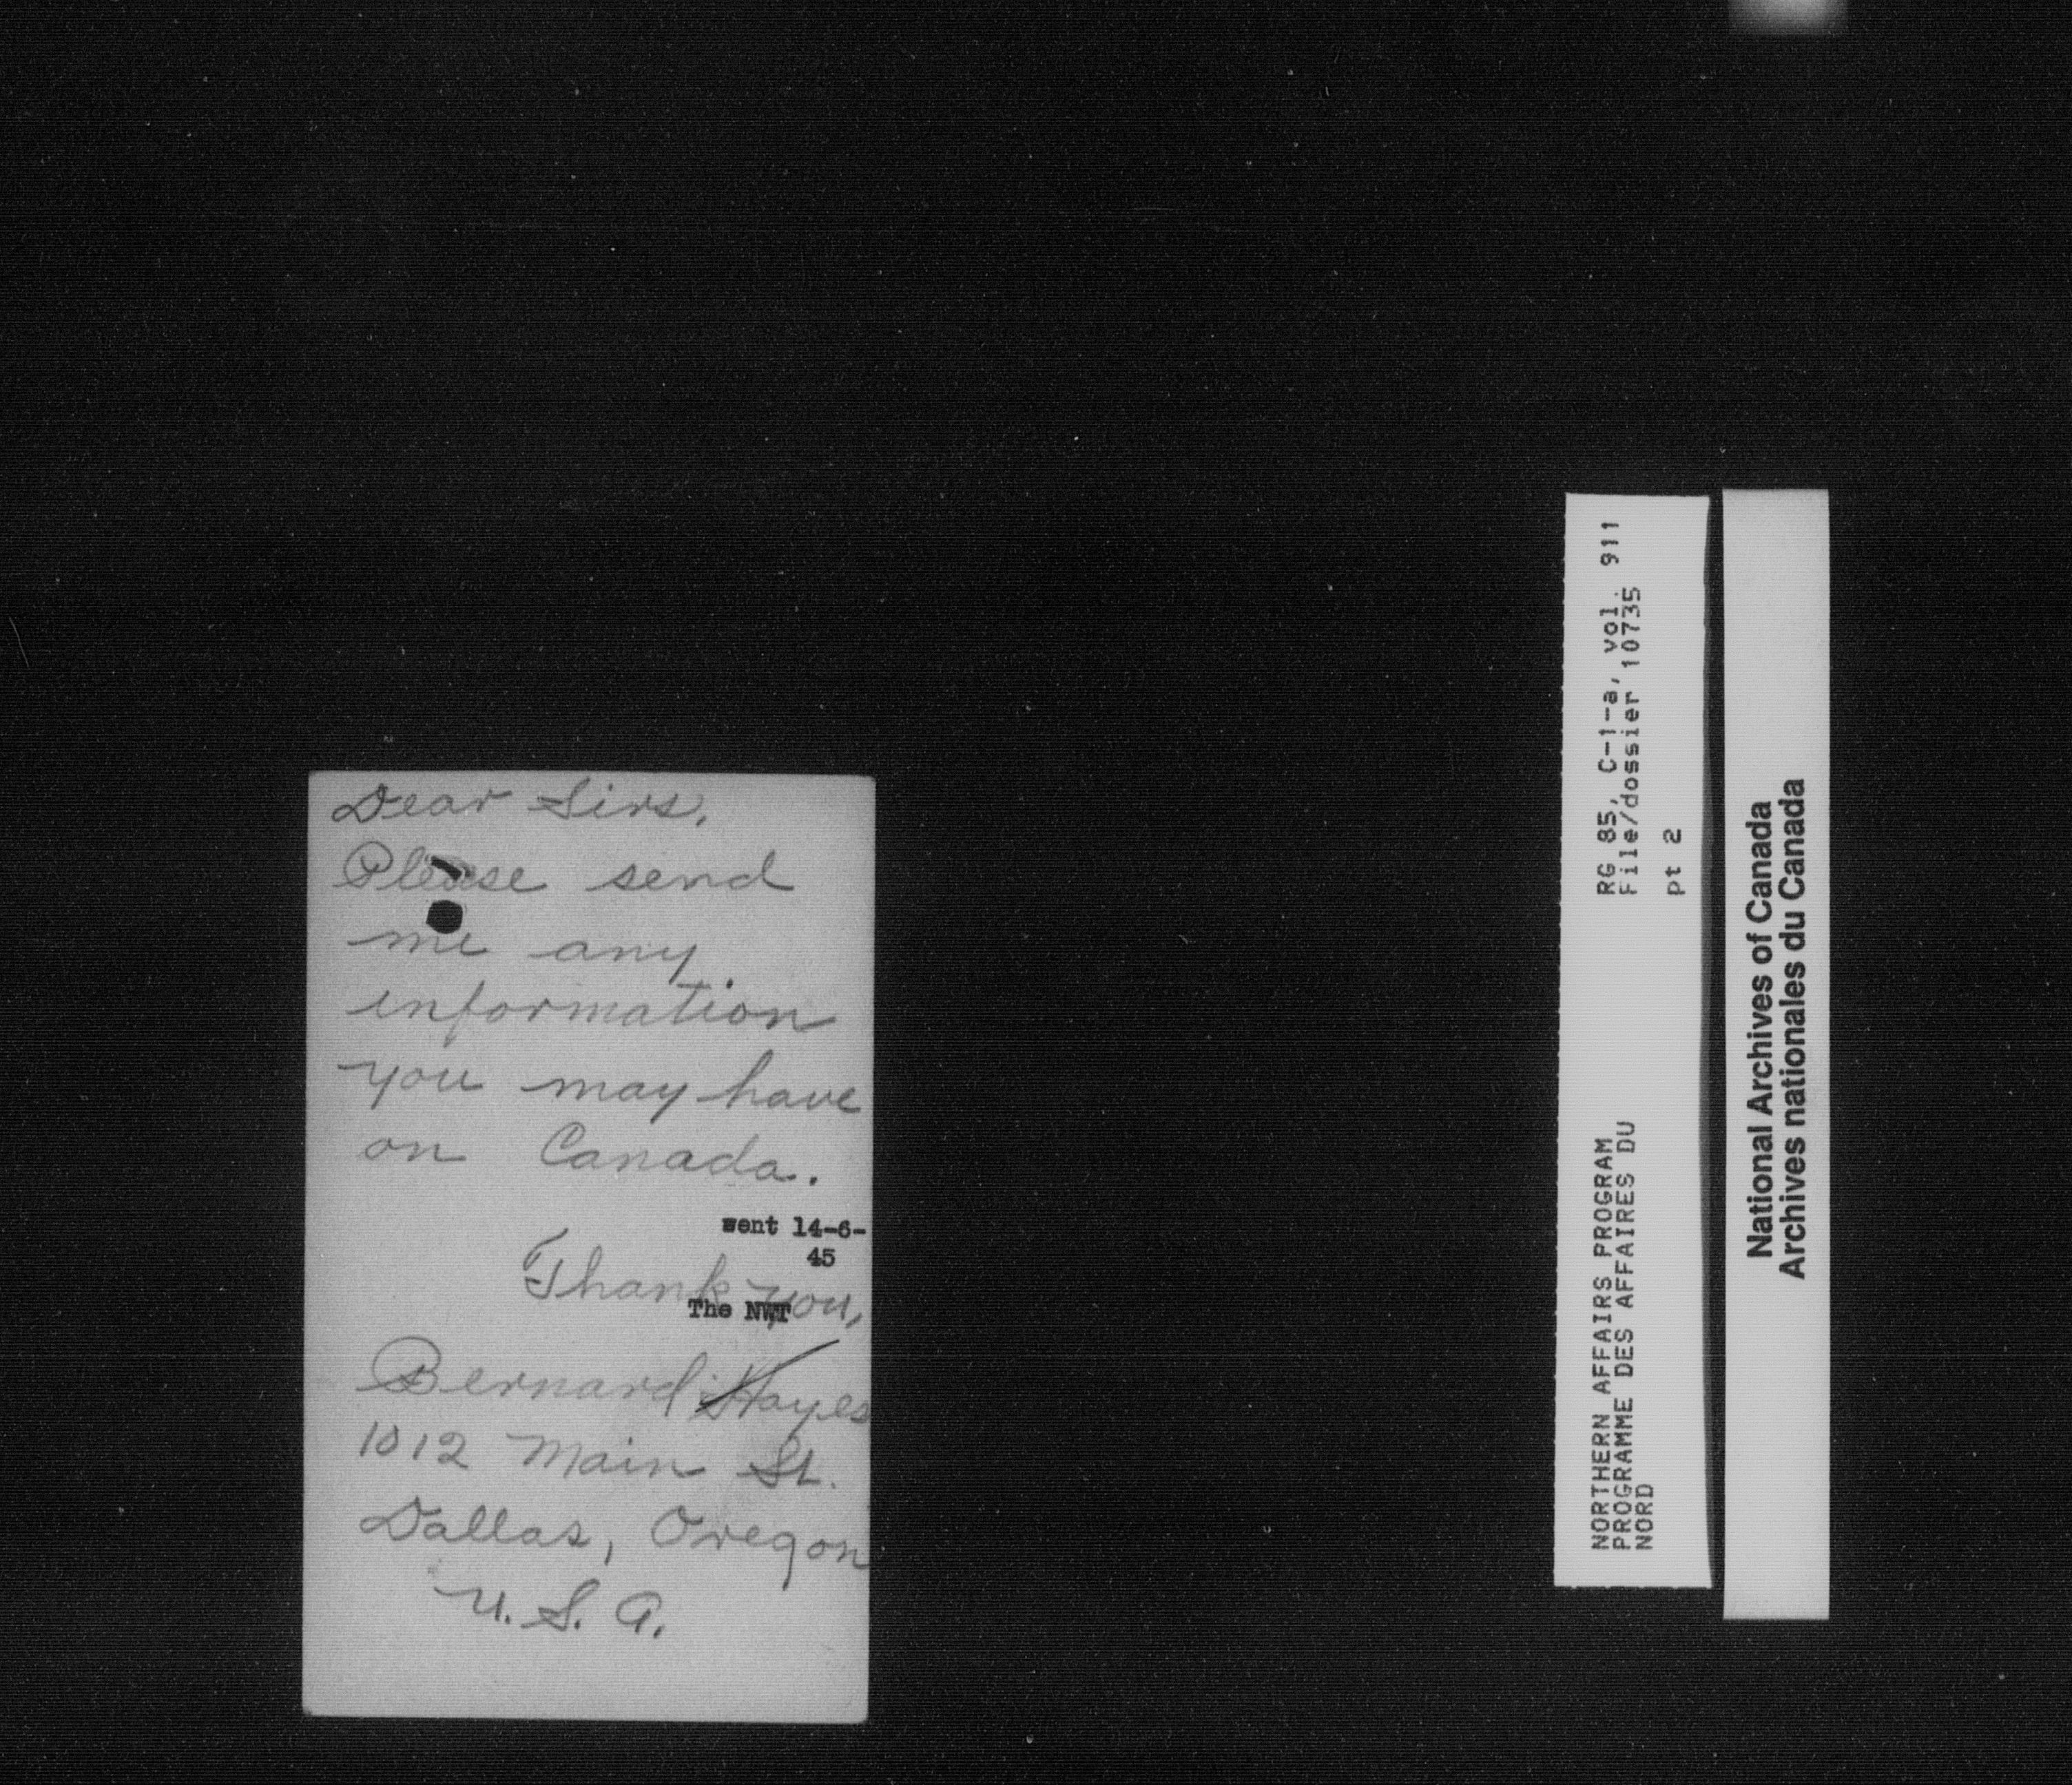 Dear Sirs,
Please send
me any
information
you may have
on Canada.
went 14-6-
45
Thank you,
The NWT
Bernard Hayes
1012 Main St.
Dallas, Oregon
U. S. A.
RG 85, C-1-a, vol. 911
File/dossier 10735
pt 2
NORTHERN AFFAIRS PROGRAM
PROGRAMME DES AFFAIRES DU
NORD
National Archives of Canada
Archives nationales du Canada